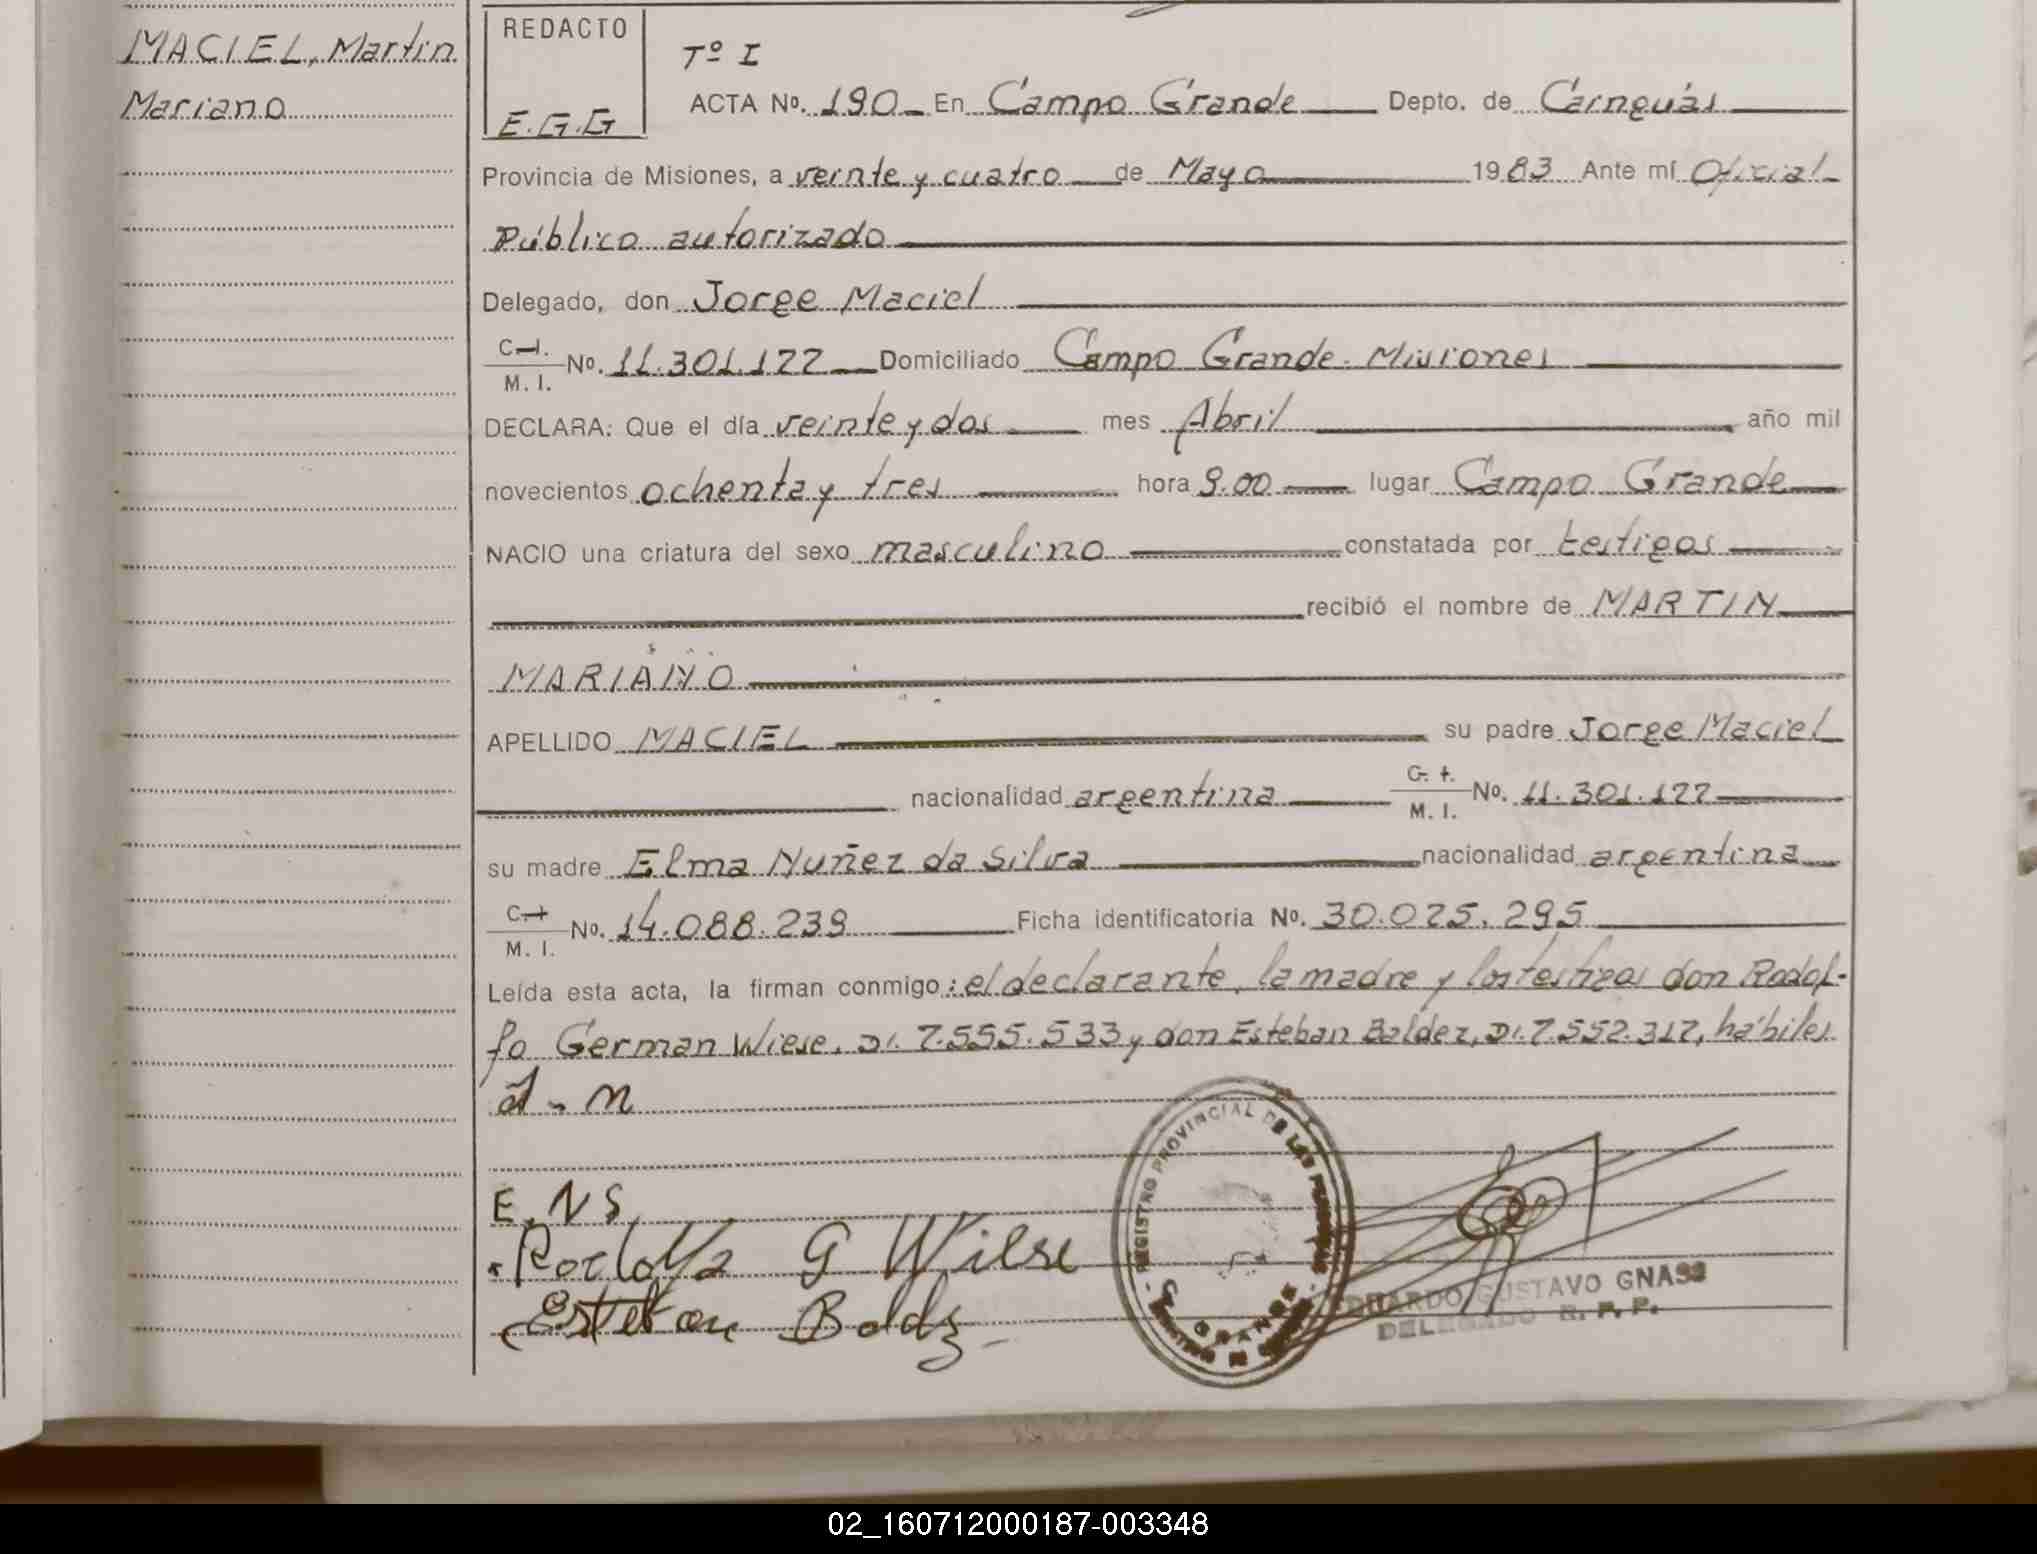 MACIEL, Martin
Mariano
REDACTO
E.G.G
Tº I
ACTA Nº. 190 En Campo Grande Depto. de Cainguás
Provincia de Misiones, a veinte y cuatro de Mayo 1983 Ante mí Oficial
Público autorizado
Delegado, don Jorge Maciel
C. I. / M. I. Nº. 11.301.122 Domiciliado Campo Grande - Misiones
DECLARA: Que el día veinte y dos mes Abril año mil
novecientos ochenta y tres hora 9.00 lugar Campo Grande
NACIO una criatura del sexo masculino constatada por testigos
recibió el nombre de MARTIN
MARIANO
APELLIDO MACIEL su padre Jorge Maciel
nacionalidad argentina C. I. / M. I. Nº. 11.301.122
su madre Elma Nuñez da Silva nacionalidad argentina
C. I. / M. I. Nº. 14.088.239 Ficha identificatoria Nº. 30.025.295
Leída esta acta, la firman conmigo: el declarante, la madre y los testigos don Rodol-
fo German Wiese, DI. 7.555.533 y don Esteban Baldez, DI. 7.552.317, hábiles.
J - M
E. N S
Rodolfo G Wiese
Esteban Baldz
REGISTRO PROVINCIAL DE LAS PERSONAS
GRANDE
EDUARDO GUSTAVO GNASS
DELEGADO R. P. P.
02_160712000187-003348